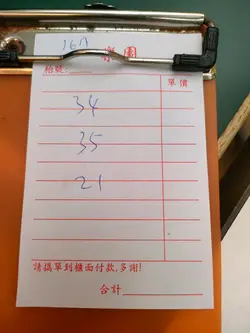 16B
樂園
枱號:
單價
34
35
21
請攜單到櫃面付款,多謝!
合計